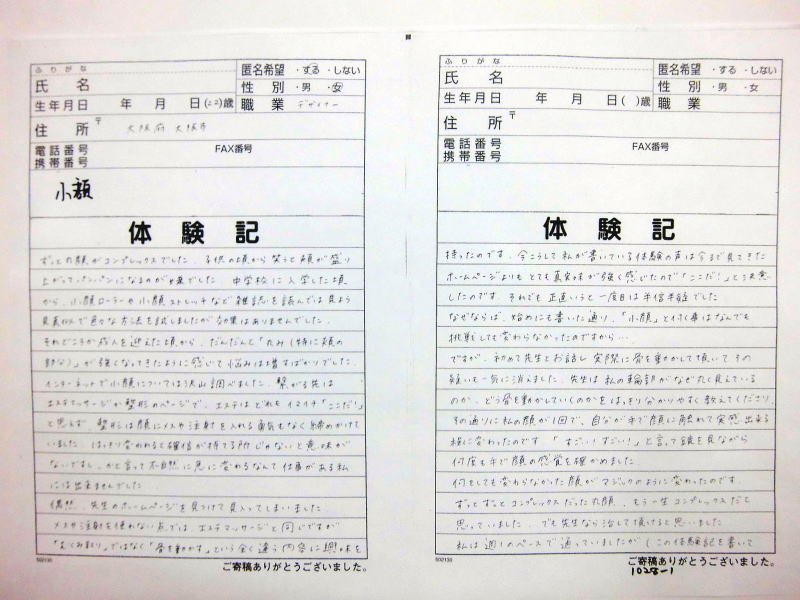 ふりがな
匿名希望 ・する・しない
氏 名
性 別 ・男 ・女
生年月日 年 月 日(22)歳
職 業 デザイナー
住 所 〒 大阪府 大阪市
電話番号 FAX番号
携帯番号
小顔
体験記
ずっと丸顔がコンプレックスでした。子供の頃から笑うと頬が盛り
上がってパンパンになるのが嫌でした。中学校に入学した頃
から、小顔ローラーや小顔ストレッチなど雑誌を読んでは見よう
見真似で色々な方法を試しましたが効果はありませんでした。
それどころか成人を迎えた頃から、だんだんと「丸み(特に頬の
部分)」が強くなってきたように感じて悩みは増すばかりでした。
インターネットで小顔については沢山調べました。繋がる先は
エステマッサージか整形のページで、エステはどれもイマイチ「ここだ!」
と思えず、整形は顔にメスや注射を入れる勇気もなく諦めかけて
いました。はっきり変われると確信が持てる所じゃないと意味が
ないですし、かと言って不自然に急に変わるなんて仕事がある私
には出来ませんでした。
偶然、先生のホームページを見つけて見入ってしまいました。
メスや注射を使わない点では、エステマッサージと同じですが
ではなく「骨を動かす」という全く違う内容に興味を
502130
ご寄稿ありがとうございました。
ふりがな
匿名希望 ・する・しない
氏 名
性 別 ・男 ・女
生年月日 年 月 日( )歳
職 業
住 所 〒
電話番号 FAX番号
携帯番号
体験記
持ったのです。今こうして私が書いている体験の声は今まで見てきた
ホームページよりもとても真実味が強く感じたので「ここだ!」と決意
したのです。それでも正直いうと一度目は半信半疑でした。
なぜならば、始めにも書いた通り、「小顔」と付く事はなんでも
挑戦しても変わらなかったのですから…
ですが、初めて先生とお話し実際に骨を動かして頂いてその
疑いも一気に消えました。先生は私の輪郭がなぜ丸く見えている
のか、どう骨を動かしていくのかをはっきり分かりやすく教えてくださり、
その通りに私の顔が1回で、自分が手で顔に触れて実感出来る
様に変わったのです。「すごい!すごい!」と言って鏡を見ながら
何度も手で顔の感覚を確かめました。
何をしても変わらなかった顔がマジックのように変わったのです。
ずっとずっとコンプレックスだった丸顔、もう一生コンプレックスだと
思っていました。でも先生なら治して頂けると思いました。
私は週1のペースで通っていましたが(この体験記を書いて
502130
ご寄稿ありがとうございました。
1028-1